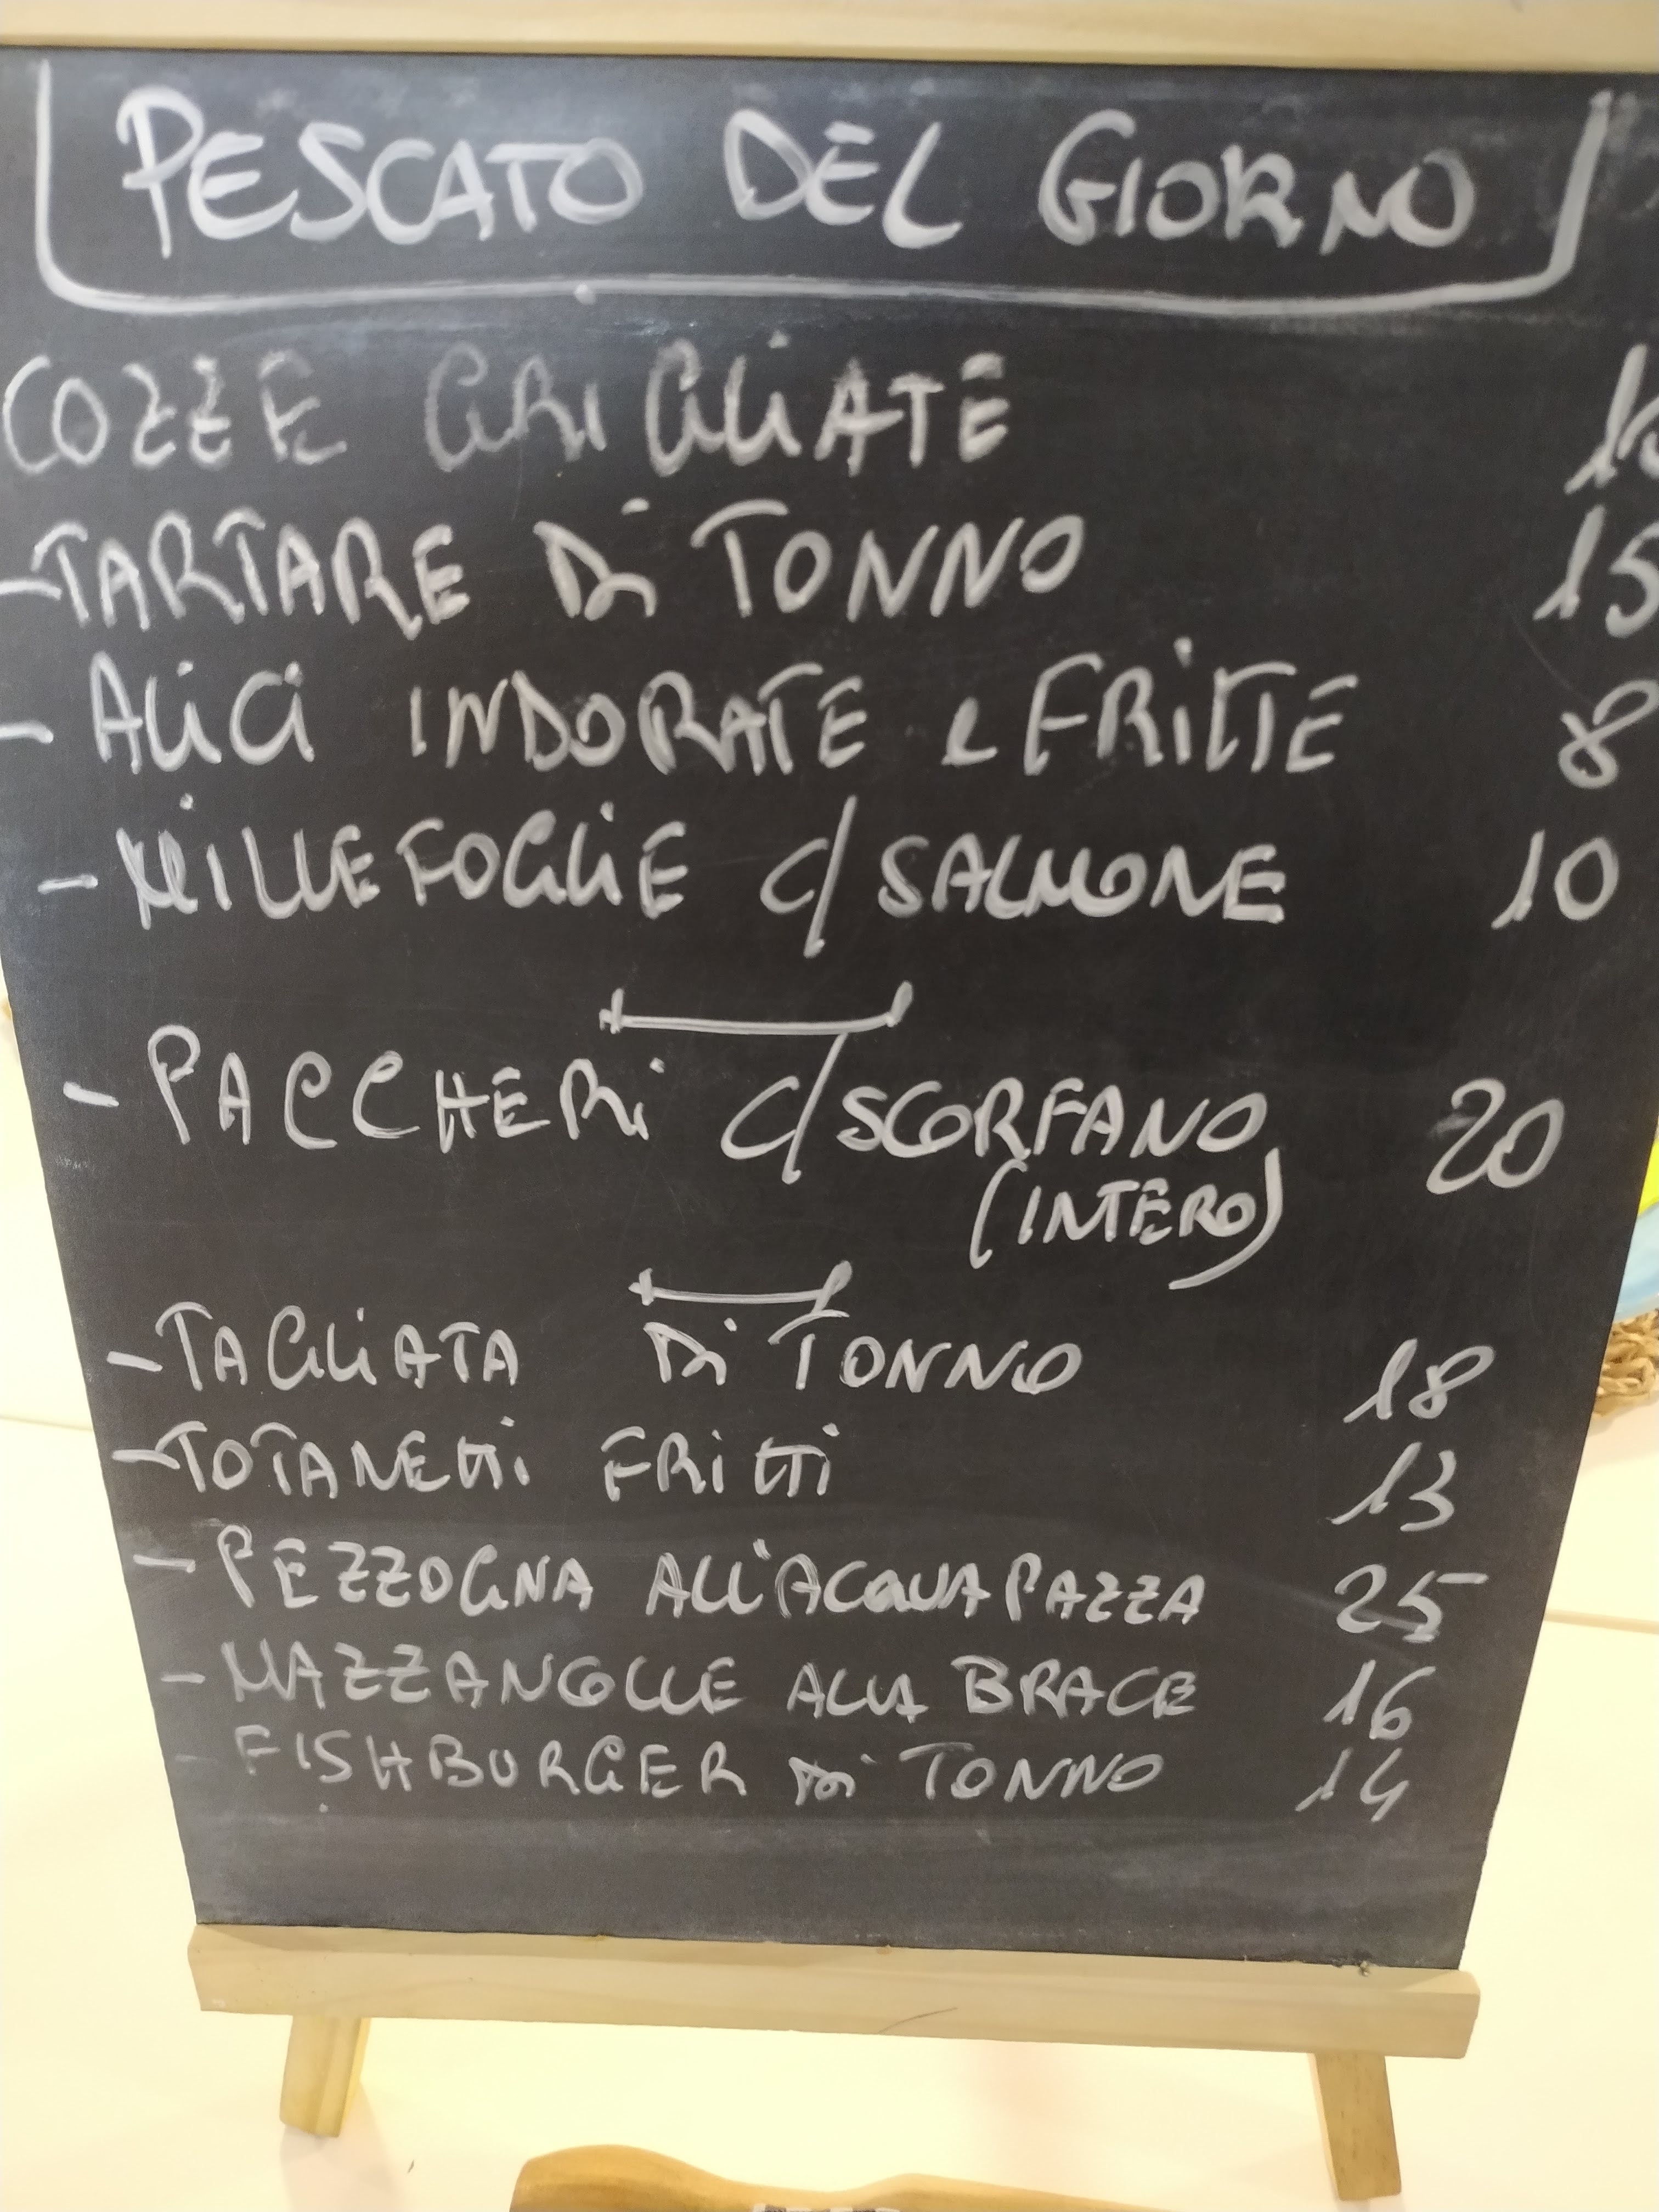 PESCATO DEL GIORNO
COZZE GRIGLIATE
-TARTARE Di TONNO 15
- ALiCi INDORATE e FRITTE 8
- MILLEFOGLIE C/SALMONE 10
- PACCHERi C/SCORFANO 20
(INTERO)
- TAGLIATA Di TONNO 18
- TOTANETTi FRITTi 13
- PEZZOGNA ALL'ACQUAPAZZA 25
- MAZZANCOLLE ALLA BRACE 16
- FISHBURGER Di TONNO 14